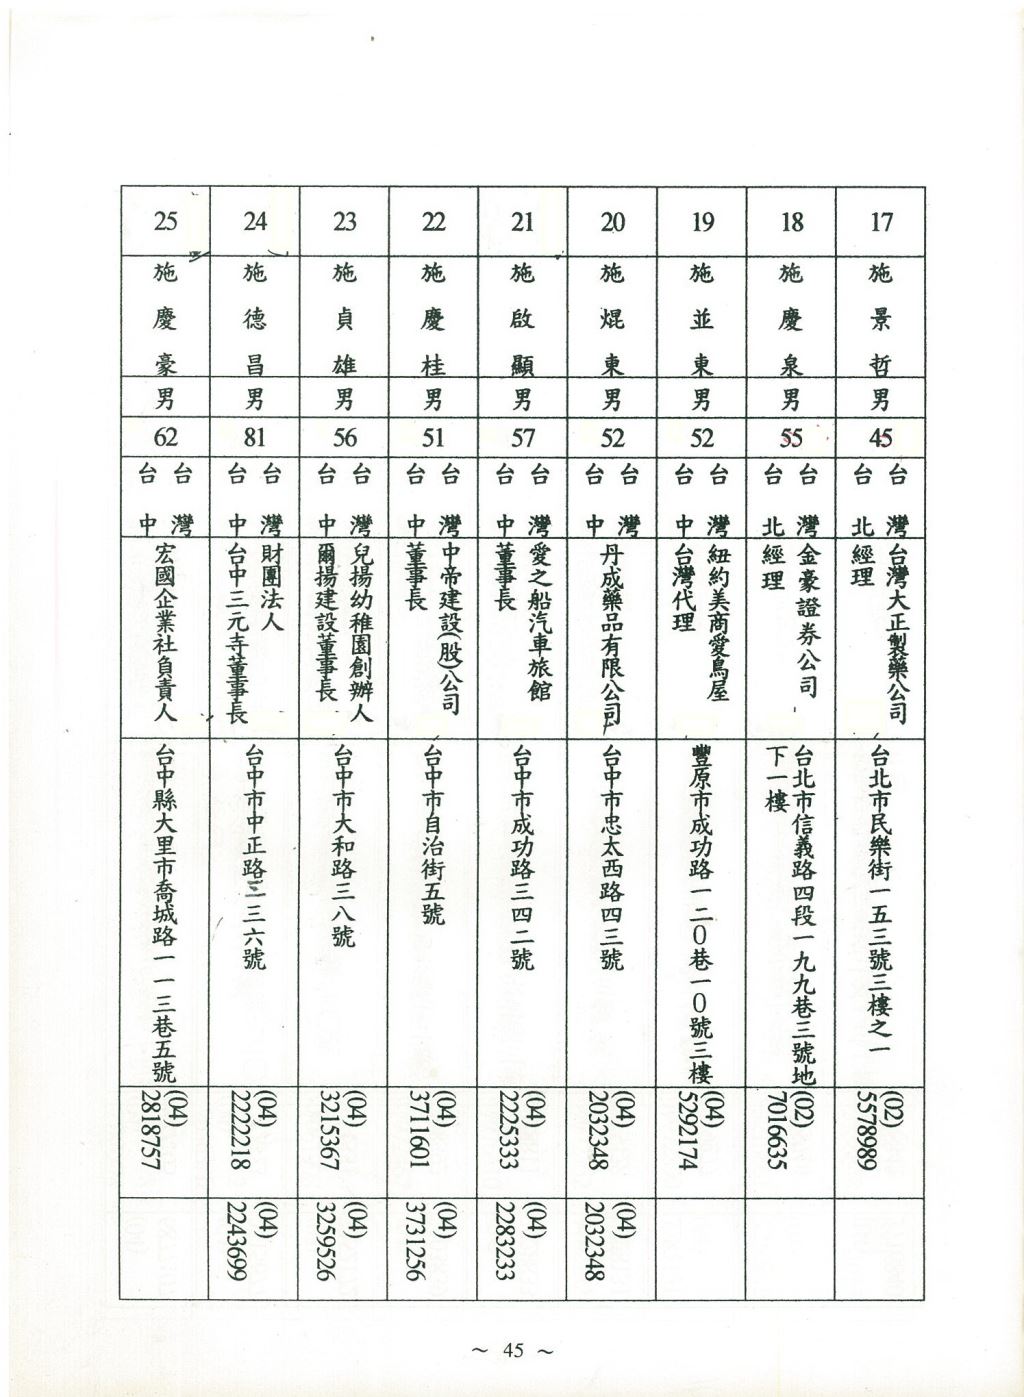 17
施景哲
男
45
台灣
台北
台灣大正製藥公司
經理
台北市民樂街一五三號三樓之一
(02)
5578989
18
施慶泉
男
55
台灣
台北
金豪證券公司
經理
台北市信義路四段一九九巷三號地
下一樓
(02)
7016635
19
施並東
男
52
台灣
台中
紐約美商愛鳥屋
台灣代理
豐原市成功路一二0巷一0號三樓
(04)
5292174
20
施焜東
男
52
台灣
台中
丹成藥品有限公司
台中市忠太西路四三號
(04)
2032348
(04)
2032348
21
施啟顯
男
57
台灣
台中
愛之船汽車旅館
董事長
台中市成功路三四二號
(04)
2225333
(04)
2283233
22
施慶桂
男
51
台灣
台中
中帝建設(股)公司
董事長
台中市自治街五號
(04)
3711601
(04)
3731256
23
施貞雄
男
56
台灣
台中
兒揚幼稚園創辦人
爾揚建設董事長
台中市大和路三八號
(04)
3215367
(04)
3259526
24
施德昌
男
81
台灣
台中
財團法人
台中三元寺董事長
台中市中正路三三六號
(04)
2222218
(04)
2243699
25
施慶豪
男
62
台灣
台中
宏國企業社負責人
台中縣大里市喬城路一一三巷五號
(04)
2818757
~ 45 ~